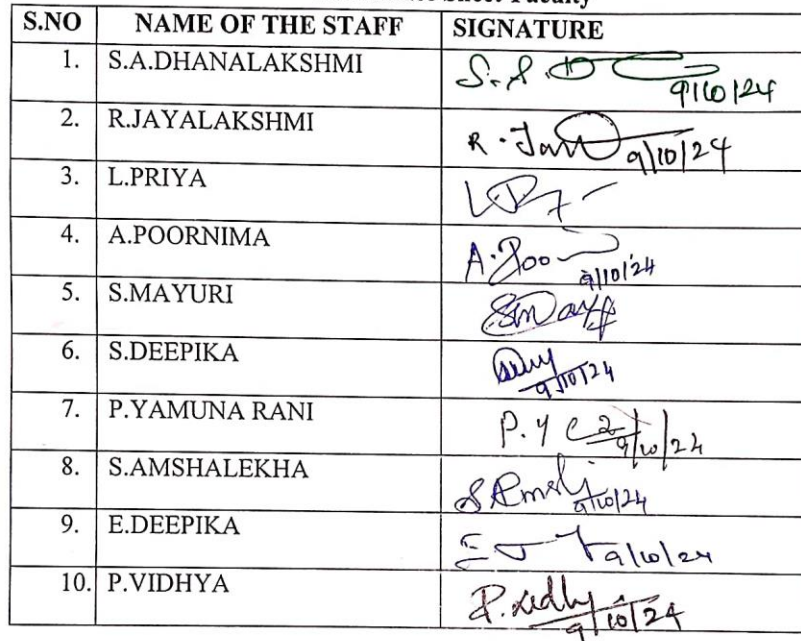 Sheet Faculty
S.NO NAME OF THE STAFF SIGNATURE
1. S.A.DHANALAKSHMI S.A.D 9/10/24
2. R.JAYALAKSHMI R.Jay 9/10/24
3. L.PRIYA
4. A.POORNIMA A.Poo 9/10/24
5. S.MAYURI
6. S.DEEPIKA 9/10/24
7. P.YAMUNA RANI P.Y 9/10/24
8. S.AMSHALEKHA 9/10/24
9. E.DEEPIKA 9/10/24
10. P.VIDHYA 9/10/24